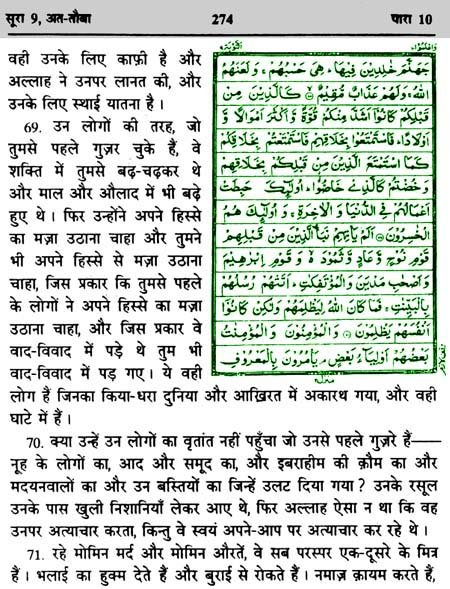 सूरा 9, अत-तौबा 274 पारा 10
वही उनके लिए काफ़ी है और
अल्लाह ने उनपर लानत की, और
उनके लिए स्थाई यातना है।
69. उन लोगों की तरह, जो
तुमसे पहले गुज़र चुके हैं, वे
शक्ति में तुमसे बढ़-चढ़कर थे
और माल और औलाद में भी बढ़े
हुए थे। फिर उन्होंने अपने हिस्से
का मज़ा उठाना चाहा और तुमने
भी अपने हिस्से से मज़ा उठाना
चाहा, जिस प्रकार कि तुमसे पहले
के लोगों ने अपने हिस्से का मज़ा
उठाना चाहा, और जिस प्रकार वे
वाद-विवाद में पड़े थे तुम भी
वाद-विवाद में पड़ गए। ये वही
लोग हैं जिनका किया-धरा दुनिया और आख़िरत में अकारथ गया, और वही
घाटे में हैं।
70. क्या उन्हें उन लोगों का वृतांत नहीं पहुँचा जो उनसे पहले गुज़रे हैं——
नूह के लोगों का, आद और समूद का, और इबराहीम की क़ौम का और
मदयनवालों का और उन बस्तियों का जिन्हें उलट दिया गया? उनके रसूल
उनके पास खुली निशानियाँ लेकर आए थे, फिर अल्लाह ऐसा न था कि वह
उनपर अत्याचार करता, किन्तु वे स्वयं अपने-आप पर अत्याचार कर रहे थे।
71. रहे मोमिन मर्द और मोमिन औरतें, वे सब परस्पर एक-दूसरे के मित्र
हैं। भलाई का हुक्म देते हैं और बुराई से रोकते हैं। नमाज़ क़ायम करते हैं,
جَهَنَّمَ خٰلِدِيْنَ فِيْهَا ؕ هِيَ حَسْبُهُمْ ۚ وَلَعَنَهُمُ
اللهُ ۚ وَلَهُمْ عَذَابٌ مُّقِيْمٌ ۙ كَالَّذِيْنَ مِنْ
قَبْلِكُمْ كَانُوْۤا اَشَدَّ مِنْكُمْ قُوَّةً وَّاَكْثَرَ اَمْوَالًا وَّ
اَوْلَادًا ؕ فَاسْتَمْتَعُوْا بِخَلَاقِهِمْ فَاسْتَمْتَعْتُمْ بِخَلَاقِكُمْ
كَمَا اسْتَمْتَعَ الَّذِيْنَ مِنْ قَبْلِكُمْ بِخَلَاقِهِمْ
وَخُضْتُمْ كَالَّذِيْ خَاضُوْا ؕ اُولٰٓئِكَ حَبِطَتْ
اَعْمَالُهُمْ فِي الدُّنْيَا وَالْاٰخِرَةِ ۚ وَاُولٰٓئِكَ هُمُ
الْخٰسِرُوْنَ اَلَمْ يَاْتِهِمْ نَبَاُ الَّذِيْنَ مِنْ قَبْلِهِمْ
قَوْمِ نُوْحٍ وَّعَادٍ وَّثَمُوْدَ ۙ وَقَوْمِ اِبْرٰهِيْمَ
وَاَصْحٰبِ مَدْيَنَ وَالْمُؤْتَفِكٰتِ ؕ اَتَتْهُمْ رُسُلُهُمْ
بِالْبَيِّنٰتِ ۚ فَمَا كَانَ اللهُ لِيَظْلِمَهُمْ وَلٰكِنْ كَانُوْۤا
اَنْفُسَهُمْ يَظْلِمُوْنَ وَالْمُؤْمِنُوْنَ وَالْمُؤْمِنٰتُ
بَعْضُهُمْ اَوْلِيَآءُ بَعْضٍ ۘ يَاْمُرُوْنَ بِالْمَعْرُوْفِ